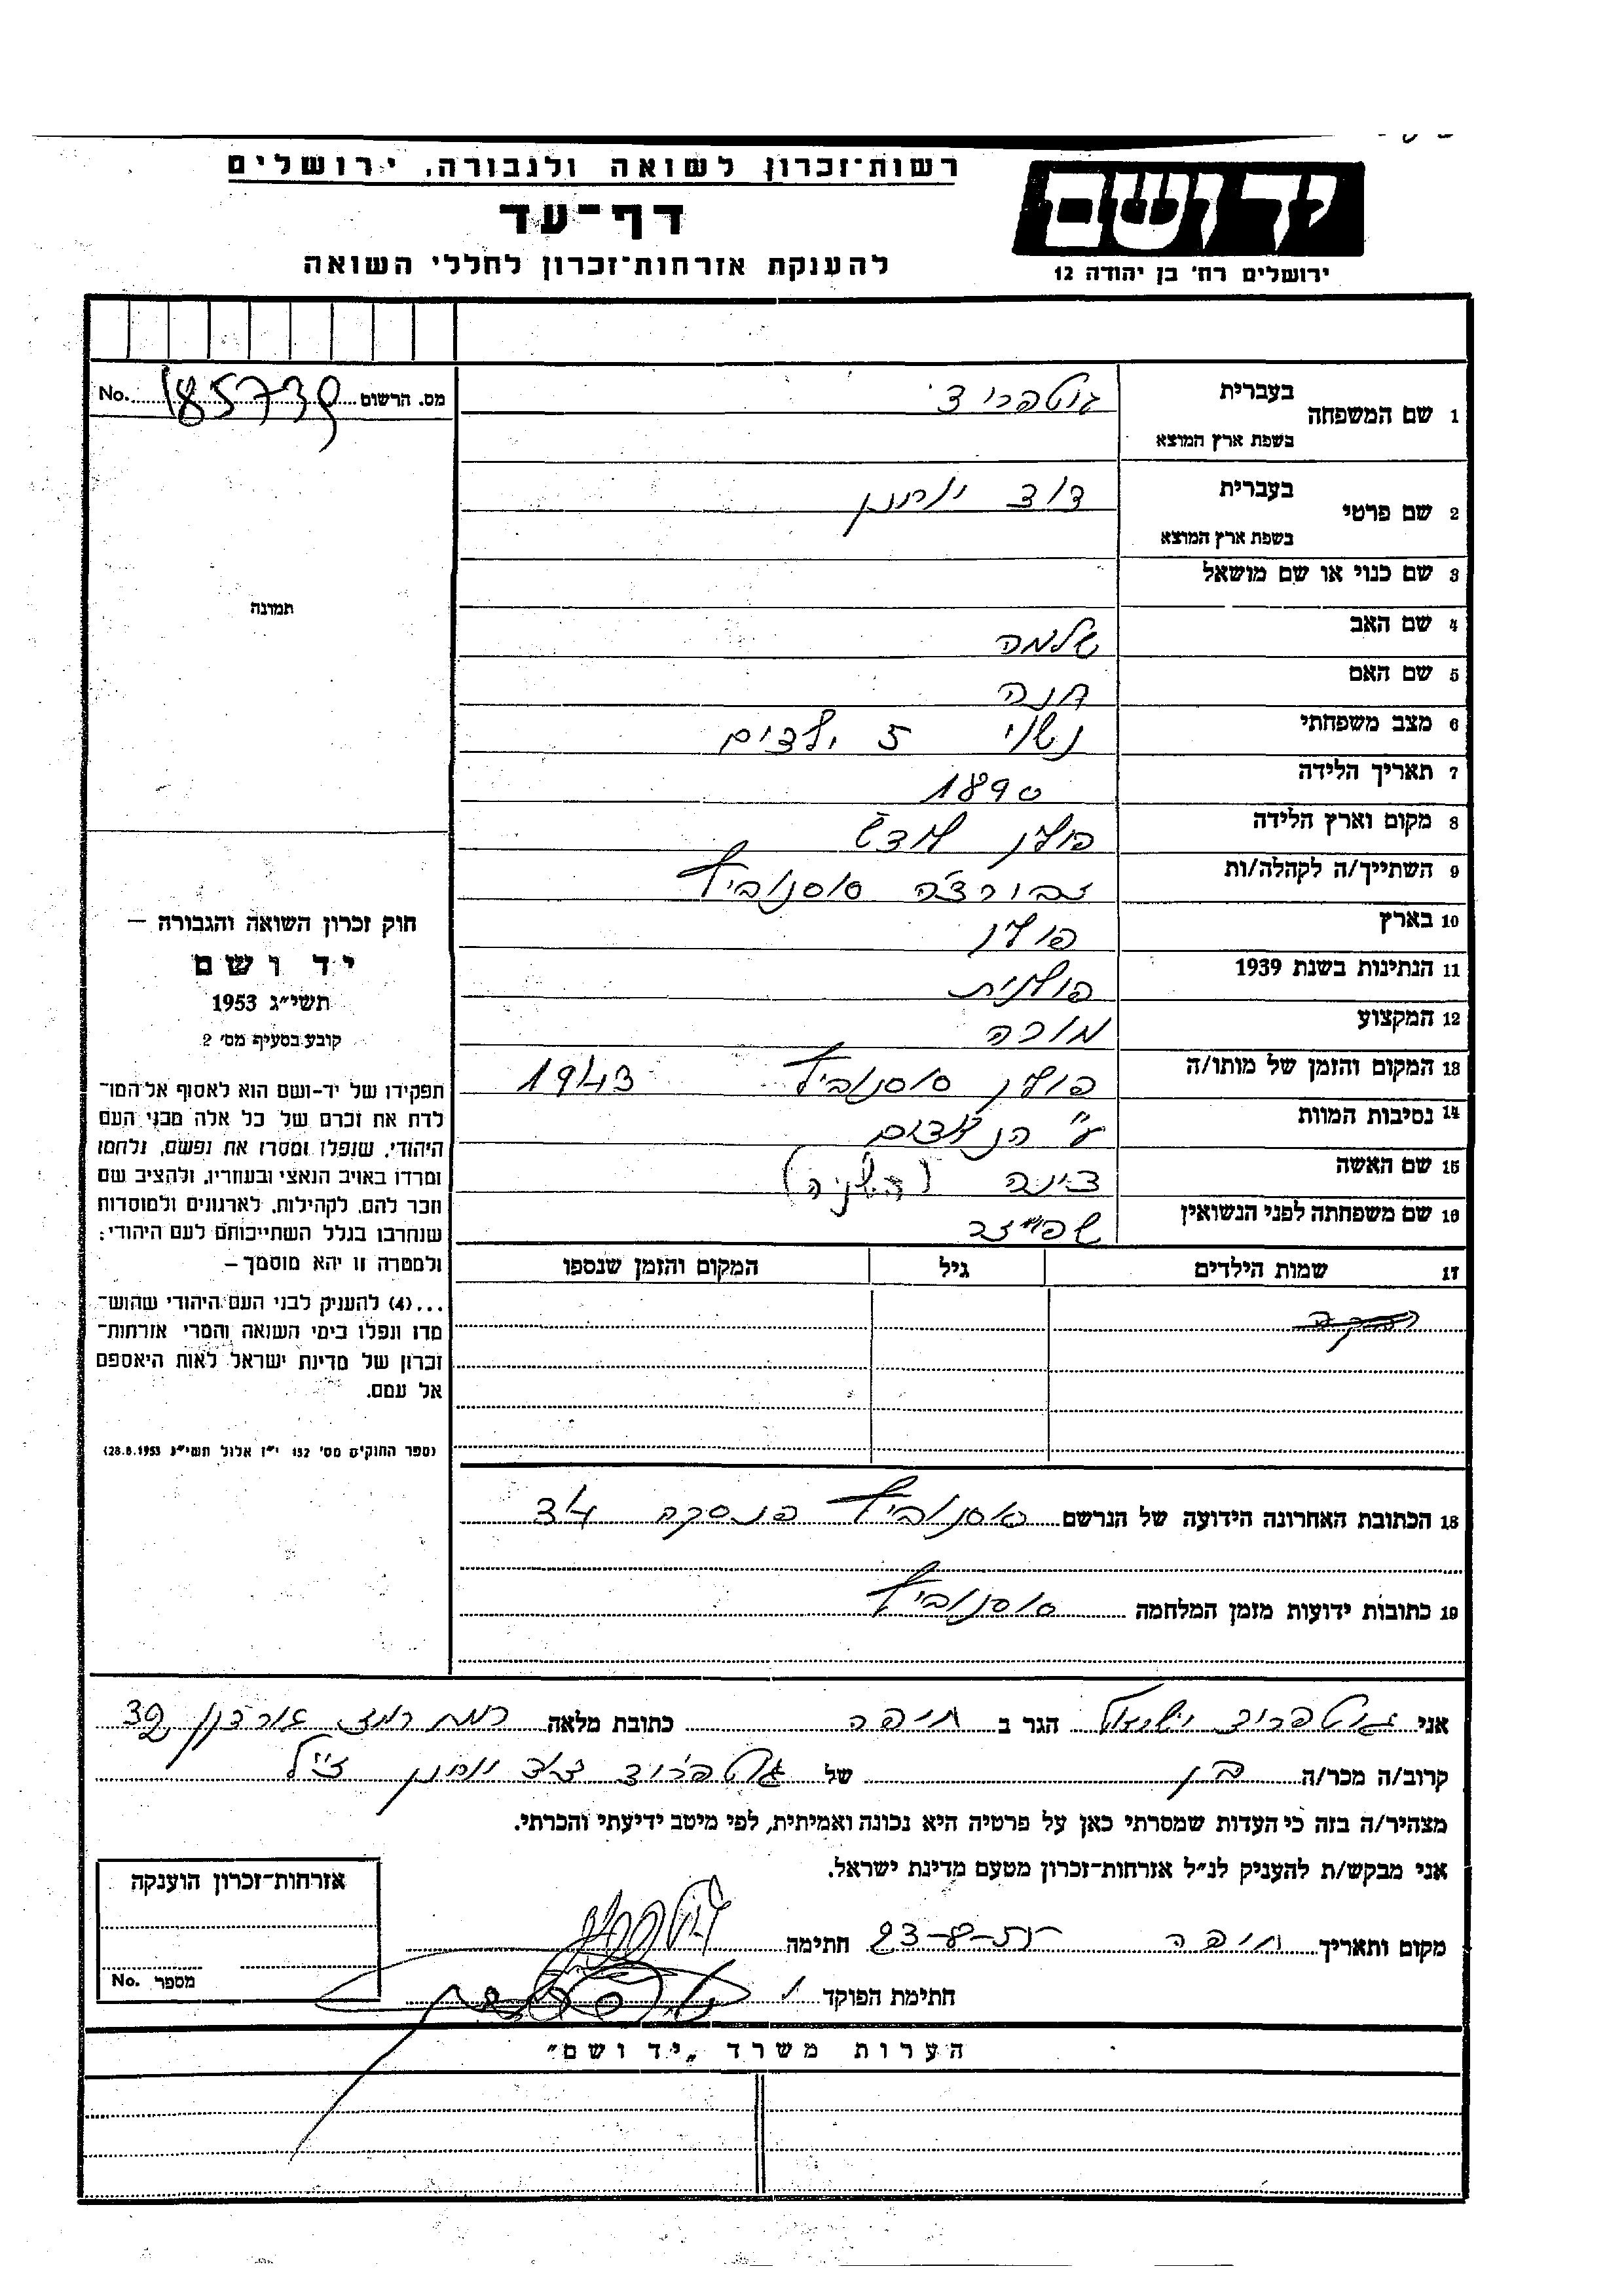 רשות־זכרון לשואה ולגבורה, ירושלים
דף־עד
להענקת אזרחות־זכרון לחללי השואה
יד ושם
ירושלים רח' בן יהודה 12
מס. הרשום 185739 No.
1 שם המשפחה בעברית גוטפריד
בשפת ארץ המוצא
2 שם פרטי בעברית דוד
בשפת ארץ המוצא
3 שם כנוי או שם מושאל
תמונה
4 שם האב שלמה
5 שם האם חנה
6 מצב משפחתי נשוי 5 ילדים
7 תאריך הלידה 1890
8 מקום וארץ הלידה פולין
9 השתייך/ה לקהלה/ות סוסנוביץ
10 בארץ פולין
11 הנתינות בשנת 1939 פולנית
12 המקצוע מורה
13 המקום והזמן של מותו/ה פולין סוסנוביץ 1943
14 נסיבות המוות ע"י הנאצים
15 שם האשה דינה
16 שם משפחתה לפני הנשואין
17 שמות הילדים גיל המקום והזמן שנספו
18 הכתובת האחרונה הידועה של הנרשם סוסנוביץ 34
19 כתובות ידועות מזמן המלחמה סוסנוביץ
חוק זכרון השואה והגבורה —
יד ושם
תשי״ג 1953
קובע בסעיף מס' 2
תפקידו של יד-ושם הוא לאסוף אל המו־
לדת את זכרם של כל אלה מבני העם
היהודי, שנפלו ומסרו את נפשם, נלחמו
ומרדו באויב הנאצי ובעוזריו, ולהציב שם
וזכר להם, לקהילות, לארגונים ולמוסדות
שנחרבו בגלל השתייכותם לעם היהודי;
ולמטרה זו יהא מוסמך —
...(4) להעניק לבני העם היהודי שהוש־
מדו ונפלו בימי השואה והמרי אזרחות־
זכרון של מדינת ישראל לאות היאספם
אל עמם.
(ספר החוקים מס' 132 י״ז אלול תשי״ג 28.8.1953)
אני גוטפריד ישראל הגר ב חיפה כתובת מלאה רמת רמז
קרוב/ה מכר/ה בן של גוטפריד דוד ז"ל
מצהיר/ה בזה כי העדות שמסרתי כאן על פרטיה היא נכונה ואמיתית, לפי מיטב ידיעתי והכרתי.
אני מבקש/ת להעניק לנ״ל אזרחות־זכרון מטעם מדינת ישראל.
מקום ותאריך חיפה חתימה
חתימת הפוקד
אזרחות־זכרון הוענקה
מספר No.
הערות משרד „יד ושם״